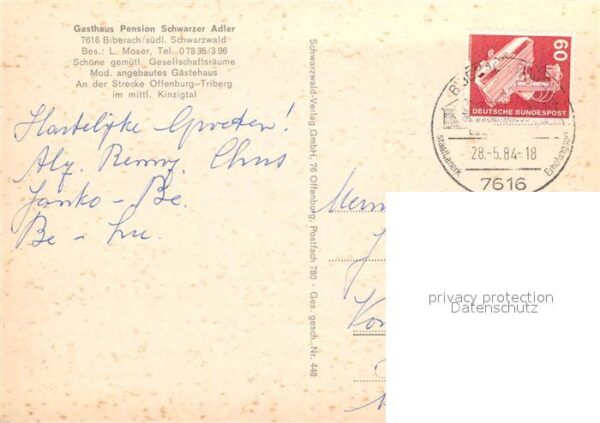 Gasthaus Pension Schwarzer Adler
7616 Biberach/südl. Schwarzwald
Bes.: L. Moser, Tel. 07835/396
Schöne gemütl. Gesellschaftsräume
Mod. angebautes Gästehaus
An der Strecke Offenburg-Triberg
im mittl. Kinzigtal
Hartelijke Groeten!
Janko - Be.
Be - Lu.
Schwarzwald-Verlag GmbH, 76 Offenburg, Postfach 780 · Ges. gesch. Nr. 448
60
DEUTSCHE BUNDESPOST
28.-5.84-18
staatl. anerk. Erholungsort
7616
privacy protection
Datenschutz